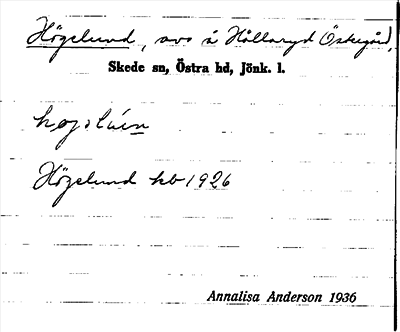 Högelund, avs å Hållaryd Östergård,
Skede sn, Östra hd, Jönk. l.
Högelund kb 1926
Annalisa Anderson 1936